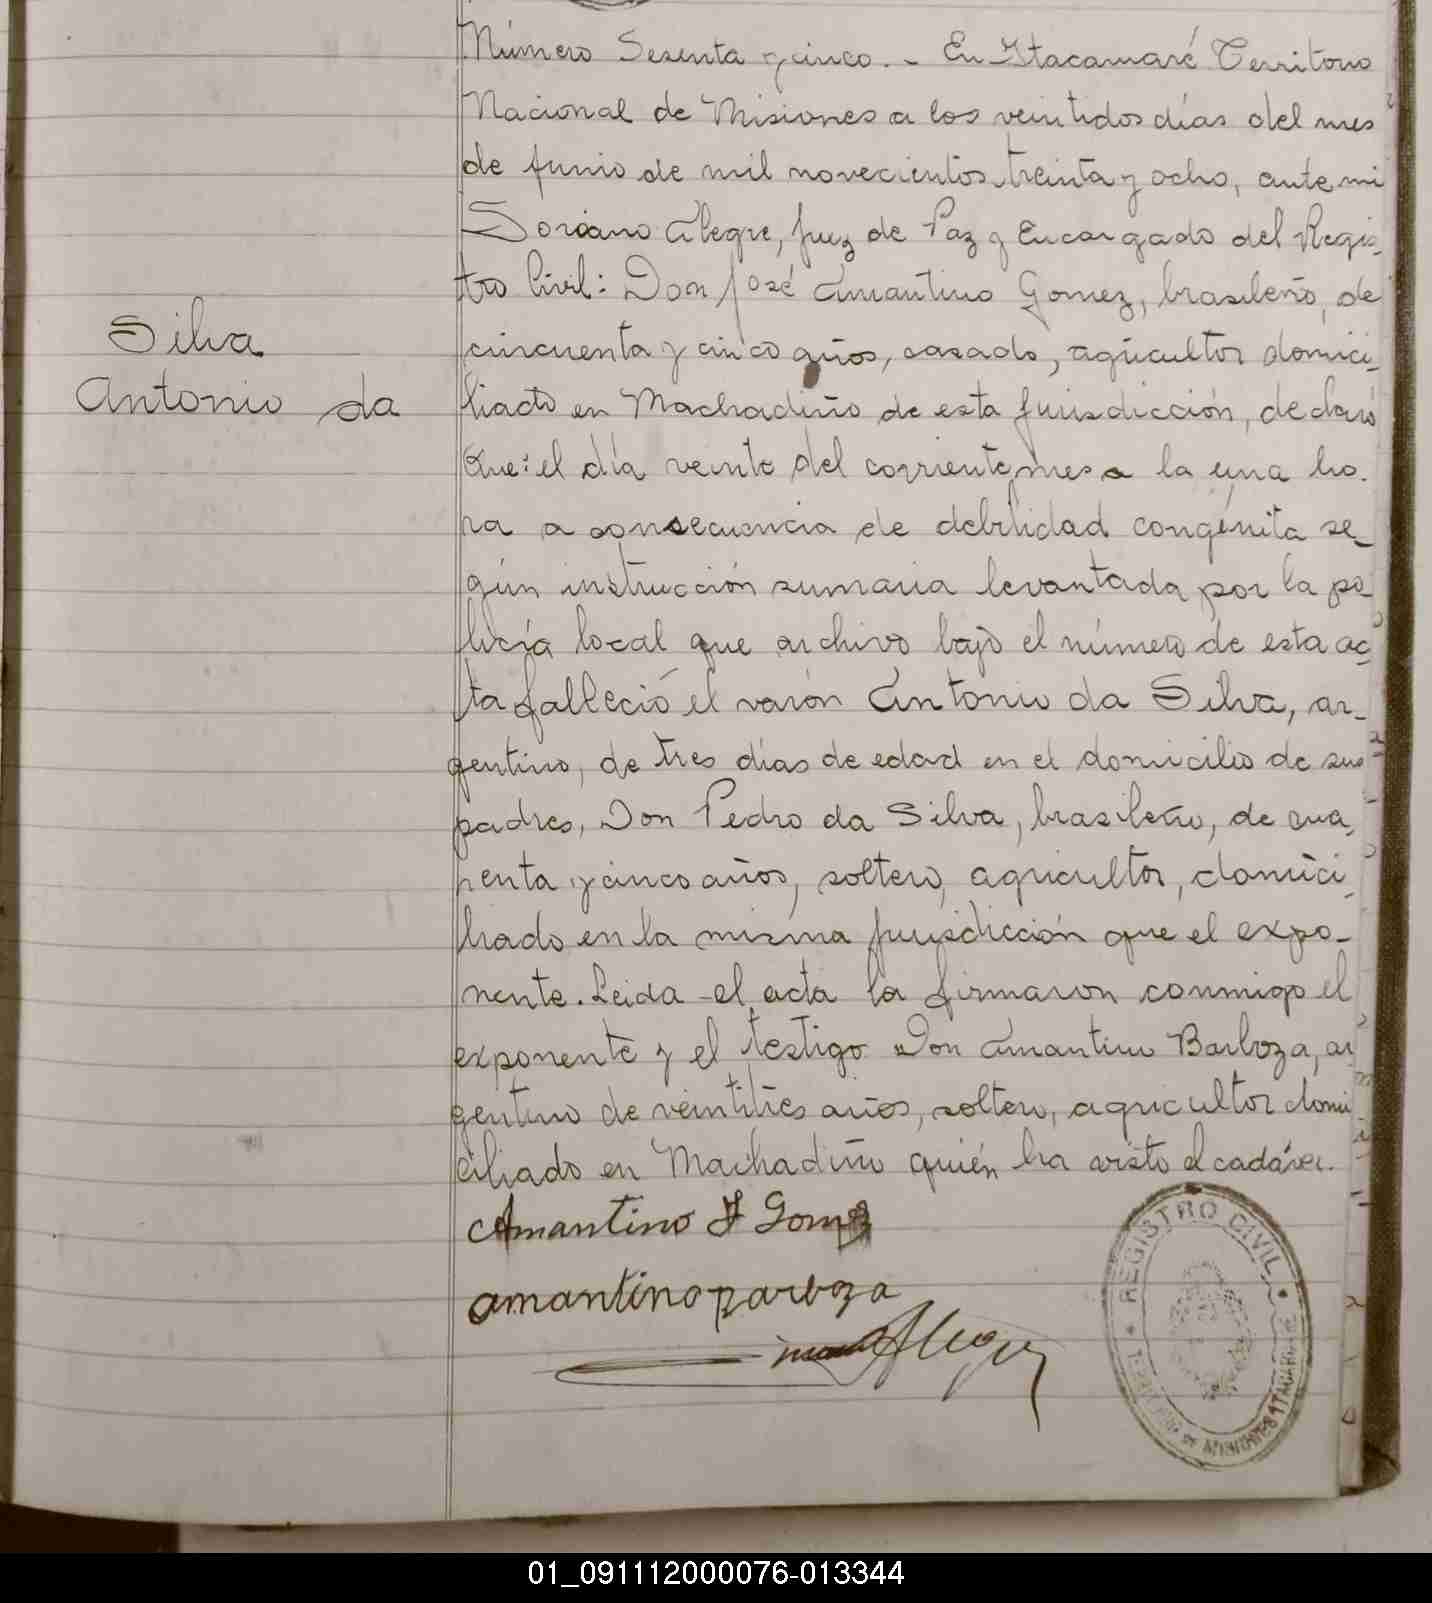 Número Sesenta y cinco. - En Itacaruaré Territorio
Nacional de Misiones a los veintidos días del mes
de Junio de mil novecientos treinta y ocho, ante mi
Soriano Alegre, Juez de Paz y Encargado del Regis-
tro Civil: Don José Amantino Gomez, brasileño, de
Silva
cincuenta y cinco años, casado, agricultor domici-
Antonio da
liado en Machadiño de esta jurisdicción, declaró
Que: el día veinte del corriente mes a la una ho-
ra a consecuencia de debilidad congénita se-
gún instrucción sumaria levantada por la po-
licía local que archivo bajo el número de esta ac-
ta falleció el varón Antonio da Silva, ar-
gentino, de tres días de edad en el domicilio de sus
padres, Don Pedro da Silva, brasileño, de cua-
renta y cinco años, soltero, agricultor, domici-
liado en la misma jurisdicción que el expo-
nente. Leida el acta la firmaron conmigo el
exponente y el testigo Don Amantino Barboza, ar
gentino de veintitrés años, soltero, agricultor domi
ciliado en Machadiño quién ha visto el cadáver.
Amantino J Gomez
amantino parboza
Alegre
REGISTRO CIVIL
MISIONES
01_091112000076-013344